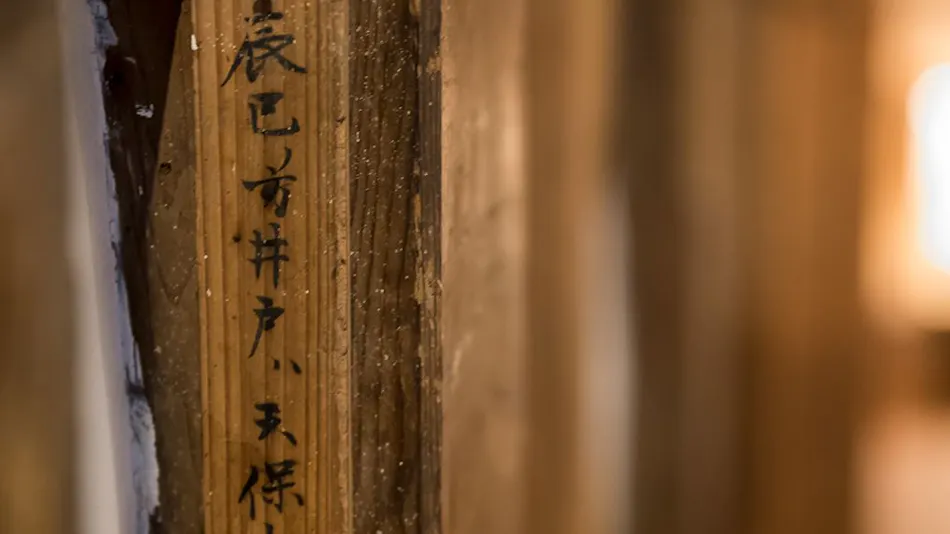 辰巳方井戸ハ天保